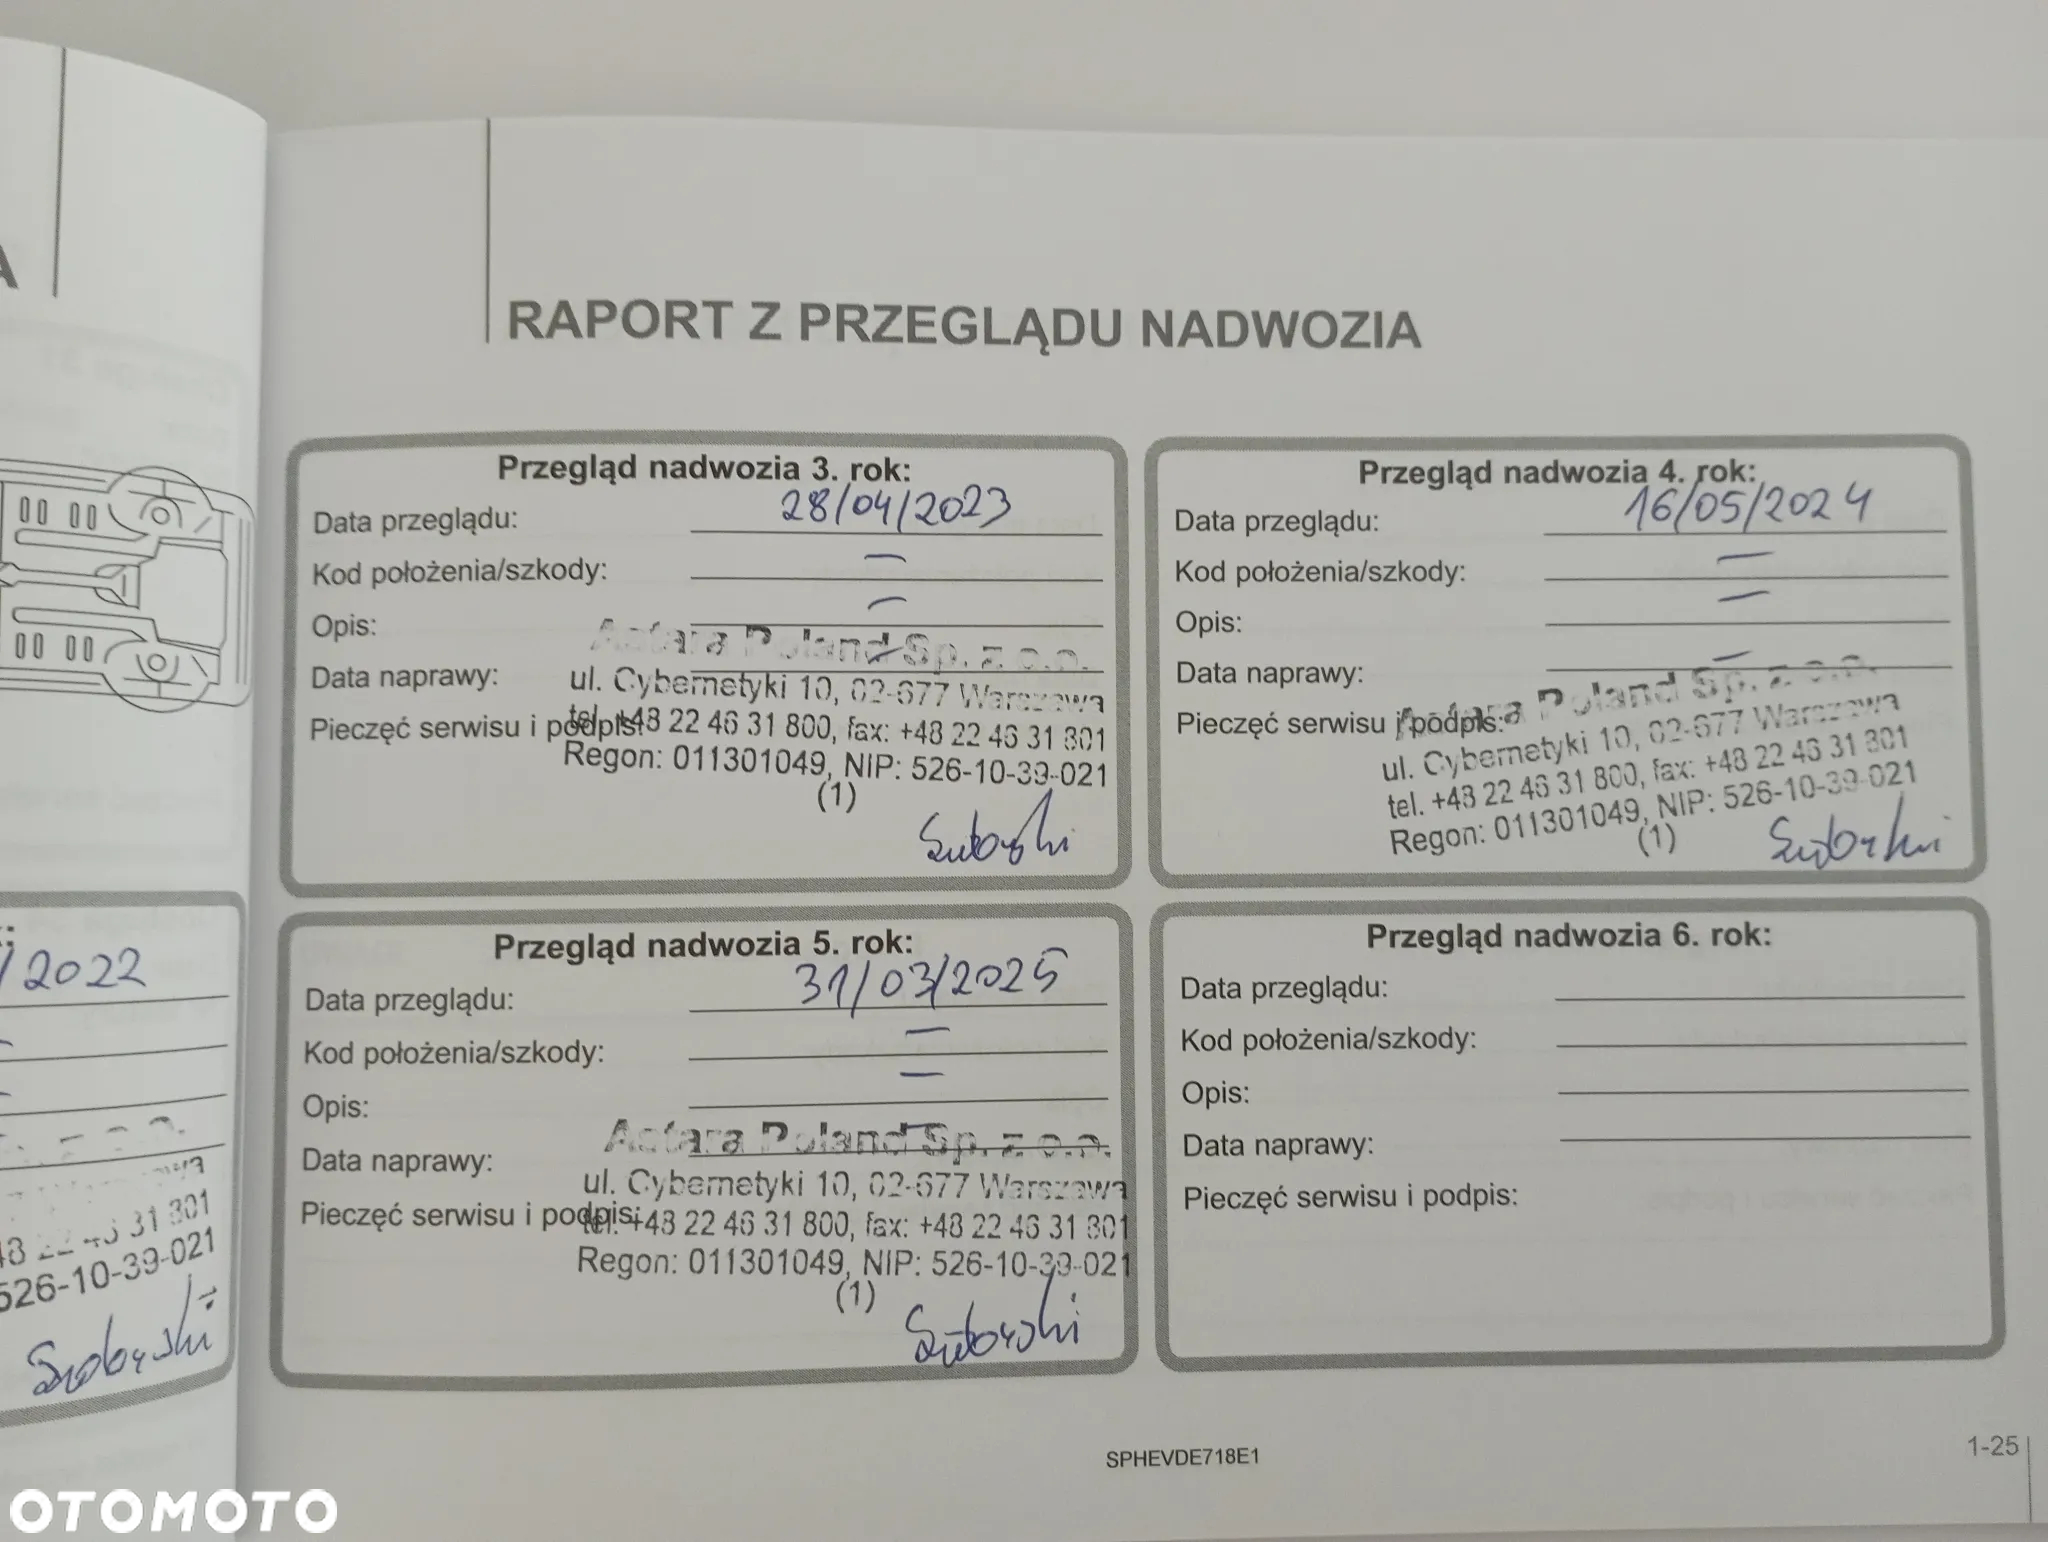 A
/2022
31 801
526-10-39-021
RAPORT Z PRZEGLĄDU NADWOZIA
Przegląd nadwozia 3. rok:
Data przeglądu: 28/04/2023
Kod położenia/szkody: –
Opis: –
Astara Poland Sp. z o.o.
Data naprawy: –
ul. Cybernetyki 10, 02-677 Warszawa
Pieczęć serwisu i podpis:
tel. +48 22 46 31 800, fax: +48 22 46 31 801
Regon: 011301049, NIP: 526-10-39-021
(1)
Przegląd nadwozia 4. rok:
Data przeglądu: 16/05/2024
Kod położenia/szkody: –
Opis: –
Data naprawy: –
Pieczęć serwisu i podpis:
Astara Poland Sp. z o.o.
ul. Cybernetyki 10, 02-677 Warszawa
tel. +48 22 46 31 800, fax: +48 22 46 31 801
Regon: 011301049, NIP: 526-10-39-021
(1)
Przegląd nadwozia 5. rok:
Data przeglądu: 31/03/2025
Kod położenia/szkody: –
Opis: –
Astara Poland Sp. z o.o.
Data naprawy: –
ul. Cybernetyki 10, 02-677 Warszawa
Pieczęć serwisu i podpis:
tel. +48 22 46 31 800, fax: +48 22 46 31 801
Regon: 011301049, NIP: 526-10-39-021
(1)
Przegląd nadwozia 6. rok:
Data przeglądu:
Kod położenia/szkody:
Opis:
Data naprawy:
Pieczęć serwisu i podpis:
SPHEVDE718E1
1-25
OTOMOTO